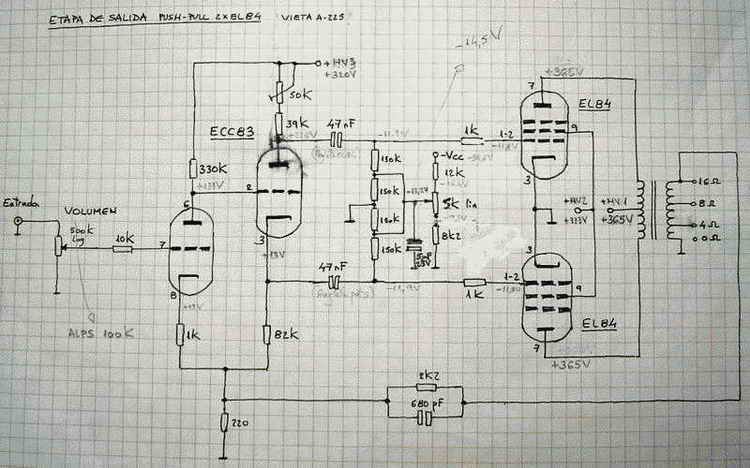 ETAPA DE SALIDA PUSH-PULL 2xEL84 VIETA A-225
-14,5V
+HV3
+320V
50K
39K
47nF
ECC83
330K
2
6
3
Entrada
VOLUMEN
500K
Log
10K
7
8
1K
ALPS 100K
82K
220
150K
150K
150K
-11,9V
-Vcc
12K
5K lin
8K2
47nF
-11,9V
1K
1-2
7
+365V
EL84
9
3
+HV2
+333V
+HV1
+365V
16Ω
8Ω
4Ω
0Ω
3
1K
1-2
9
EL84
7
+365V
2K2
680 pF